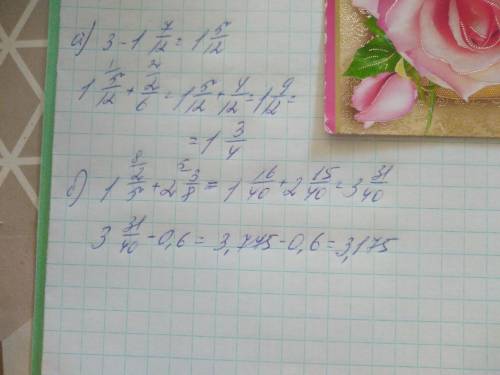 а) 3 - 1 7/12 = 1 5/12
1 5/12 + 2/6 = 1 5/12 + 4/12 = 1 9/12 =
= 1 3/4
б) 1 2/5 + 2 3/8 = 1 16/40 + 2 15/40 = 3 31/40
3 31/40 - 0,6 = 3,775 - 0,6 = 3,175